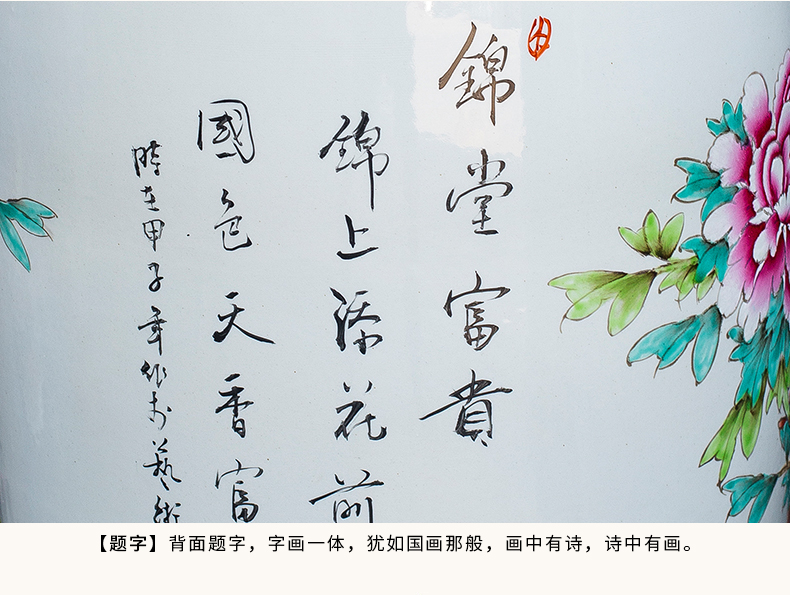 錦堂富貴
錦上添花前
國色天香富
時在甲子年作於藝術
【题字】背面题字，字画一体，犹如国画那般，画中有诗，诗中有画。